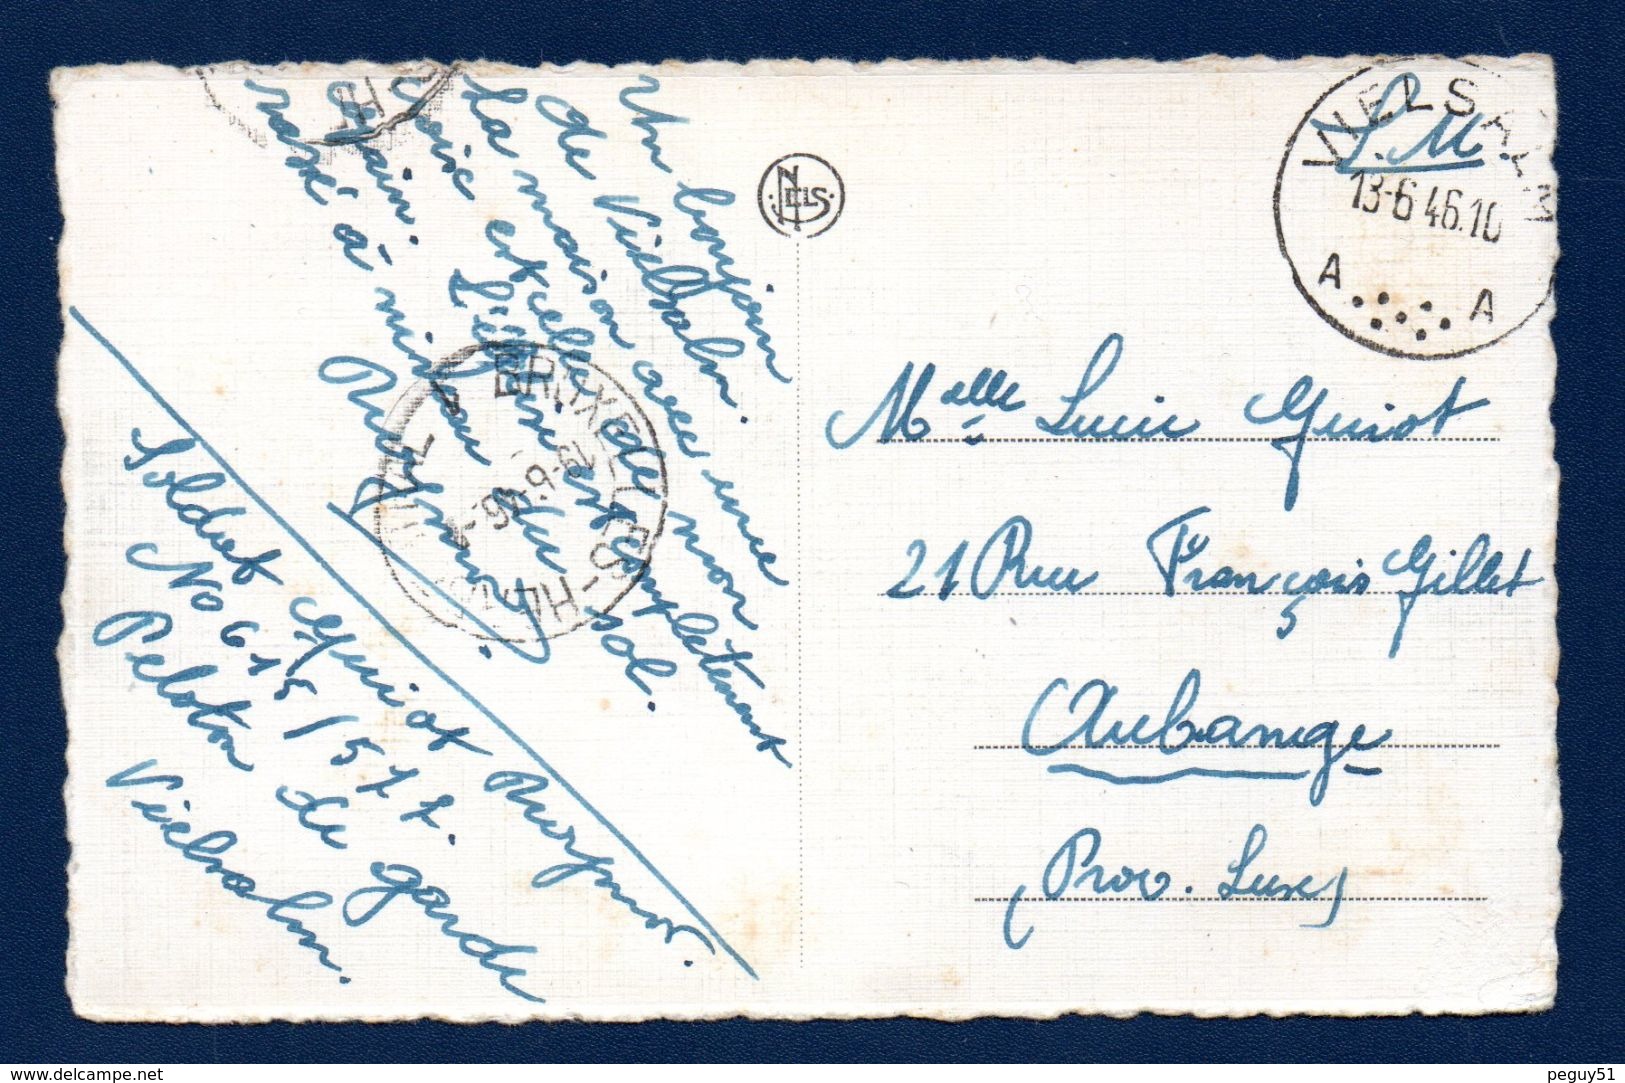 Un bonjour
de Vielsalm.
La maison avec une
croix est celle de mon
copain. L'église est complètement
rasé à niveau du sol.
Raymond.
Soldat Guiot Raymond.
No 615/577.
Peloton de garde
Vielsalm.
NELS
S.M
VIELSALM
13-6 46.10
A A
BRUXELLES-
Melle Lucie Guiot
21 Rue François Gillet
5
Aubange
(Prov. Lux)
delcampe.net
peguy51